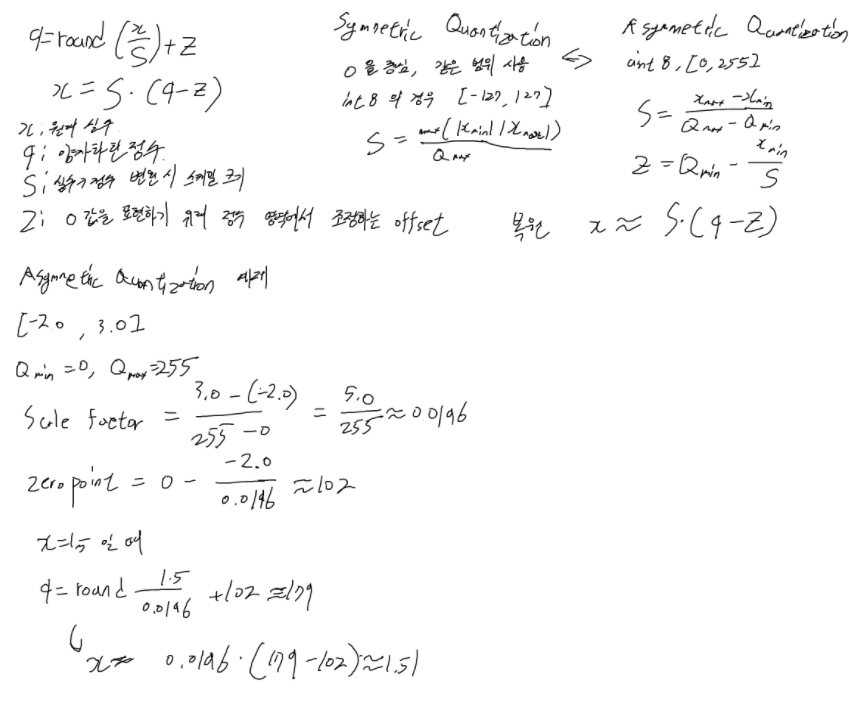 q=round(x/S)+Z
x=S·(q-Z)
x: 원래 실수
q: 양자화된 정수
S: 실수→정수 변환 시 스케일 크기
Z: 0 값을 표현하기 위해 정수 영역에서 조정하는 offset
Symmetric Quantization
0을 중심, 같은 범위 사용
int8의 경우 [-127, 127]
S = max(|xmin| |xmax|) / Qmax
<=>
Asymmetric Quantization
uint 8, [0,255]
S = (xmax - xmin) / (Qmax - Qmin)
Z = Qmin - xmin / S
복원 x ≈ S·(q-Z)
Asymmetric Quantization 예제
[-2.0, 3.0]
Qmin=0, Qmax=255
Scale factor = (3.0-(-2.0)) / (255-0) = 5.0/255 ≈ 0.0196
zero point = 0 - (-2.0/0.0196) ≈ 102
x=1.5 일 때
q=round 1.5/0.0196 +102 ≈ 179
↳ x≈ 0.0196·(179-102)≈1.51